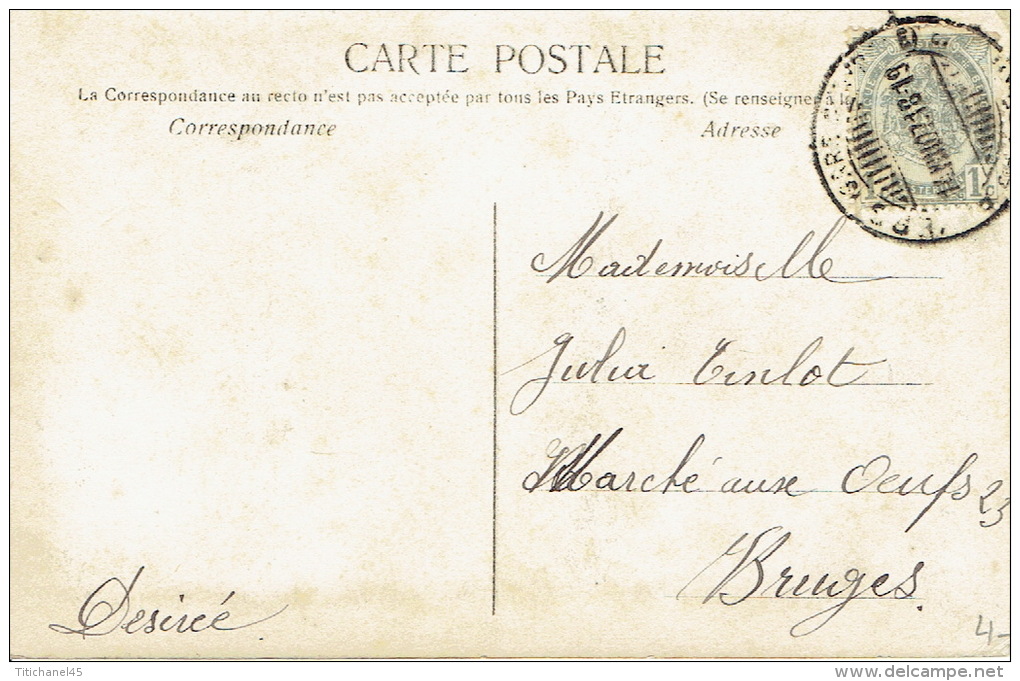 CARTE POSTALE
La Correspondance au recto n'est pas acceptée par tous les Pays Etrangers. (Se renseigner à la
Correspondance
Adresse
Mademoiselle
Julia Tinlot
Marché aux Oeufs 23
Bruges
Desirée
4-
Titichanel45
www.delcampe.net